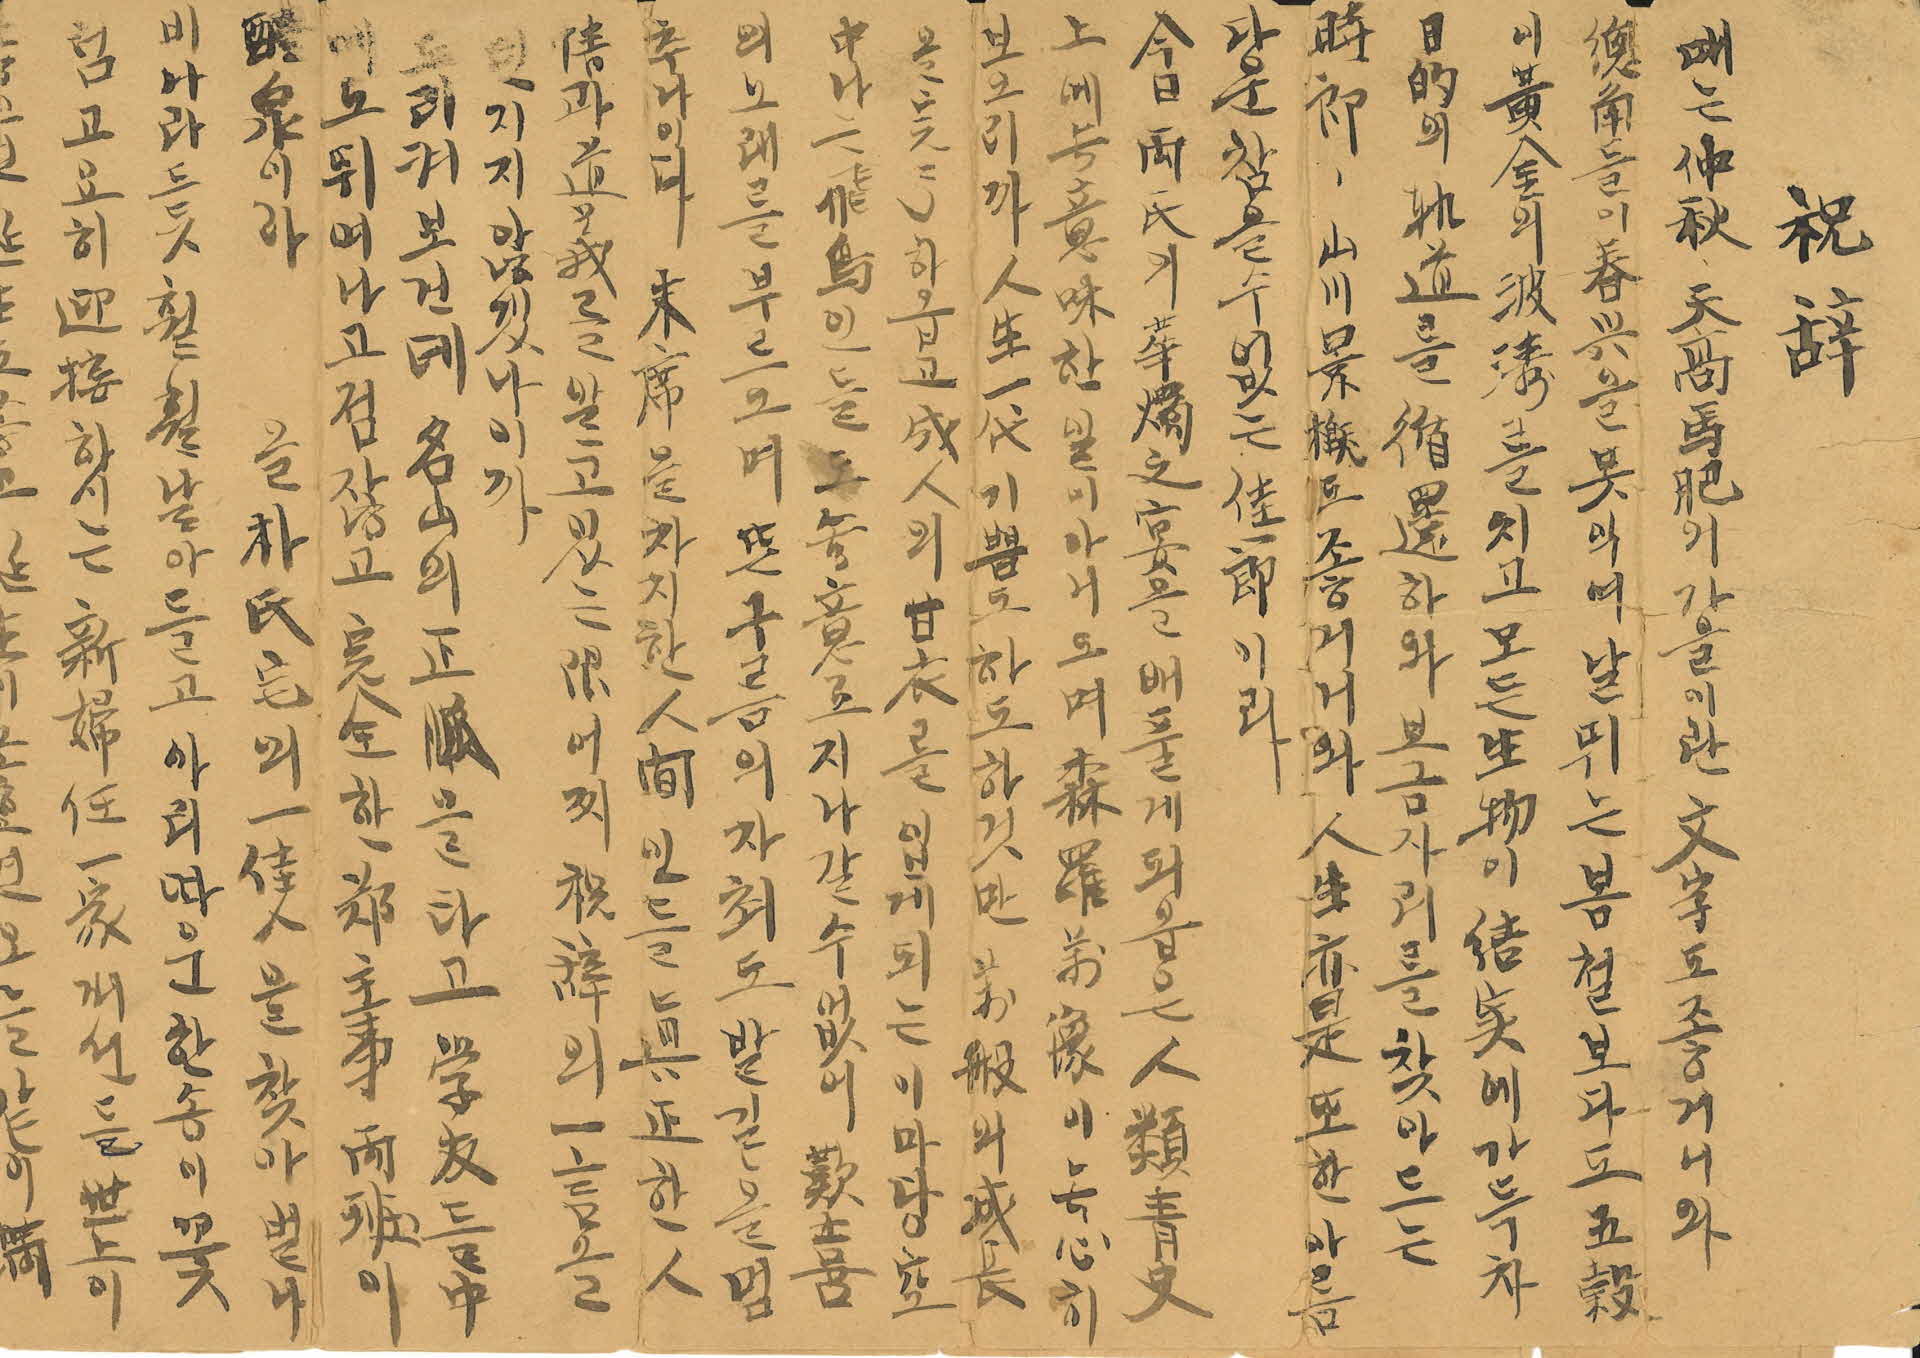 祝辞
때는 仲秋 天高馬肥의 가을이란 文字도 조흥거니와
總角들이 春兴을 못익여 날뛰는 봄철보다도 五穀
이 黃金의 波濤를 치고 모든 生物이 結実에 가득차
目的의 軌道를 循還하와 보금자리를 찾아드는
時節、山川景槪도 조흥거니와 人生亦是 또한 아름
다운 참을수없는 佳節이라
今日 両氏가 華燭之宴을 배풀게되옴은 人類青史
上에 특意味한 일이 아니오며 森羅萬像이 녹心히
보오리까 人生一代 기쁨도 하도하것만 萬般의 成長
을 하옵고 成人의 甘衣를 입게되는 이마당 空
中나는 飛鳥인들도 홍意로 지나갈수없이 歡喜
의 노래를 부르오며 뜬구름의 자최도 발길을 멈
추나이다 末席을 차지한 人間인들 眞正한 人
情과 道義를 알고있는 限 어찌 祝辞의 一言을
앗기지 않겠나이까
들리커보건데 名山의 正脈을 타고 学友들中
에도 뛰여나고 점잖고 完全한 郑主事 両班이
醴泉이라 을 朴氏宅의 一佳人을 찾아 벌나
비나라들듯 훨훨 날아들고 아리따운 한송이꽃
럼 고요히 迎接하시는 新婦任 一家개선들 世上이